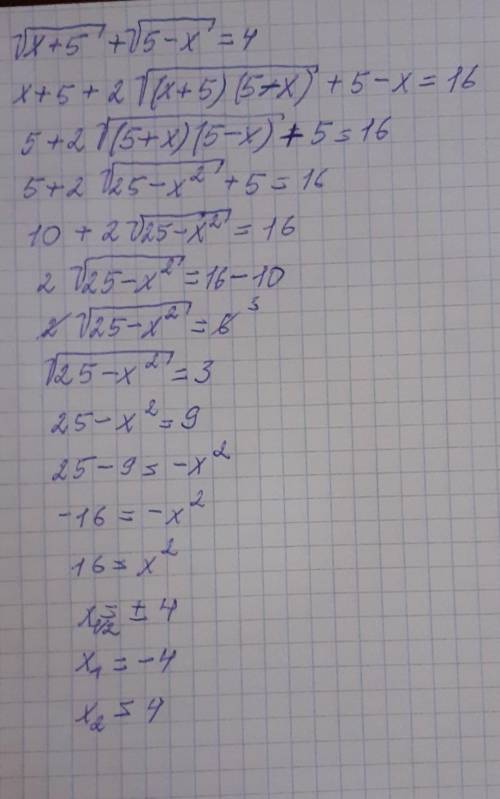 √(x+5) + √(5-x) = 4
x+5+2√((x+5)(5-x)) + 5-x = 16
5+2√((5+x)(5-x)) + 5 = 16
5+2√(25-x²) + 5 = 16
10 + 2√(25-x²) = 16
2√(25-x²) = 16-10
2√(25-x²) = 6 3
√(25-x²) = 3
25-x² = 9
25-9 = -x²
-16 = -x²
16 = x²
x₁,₂ = ± 4
x₁ = -4
x₂ = 4